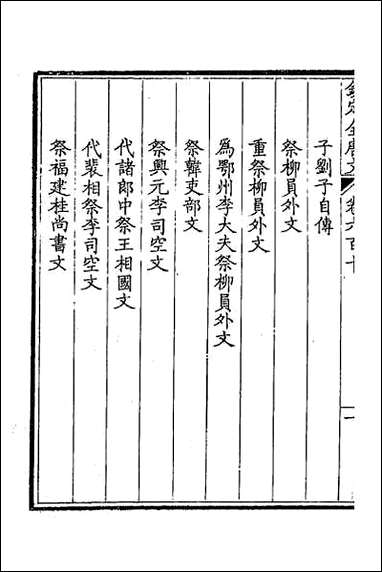 欽定全唐文
卷六百十
一
子劉子自傳
祭柳員外文
重祭柳員外文
為鄂州李大夫祭柳員外文
祭韓吏部文
祭興元李司空文
代諸郎中祭王相國文
代裴相祭李司空文
祭福建桂尚書文